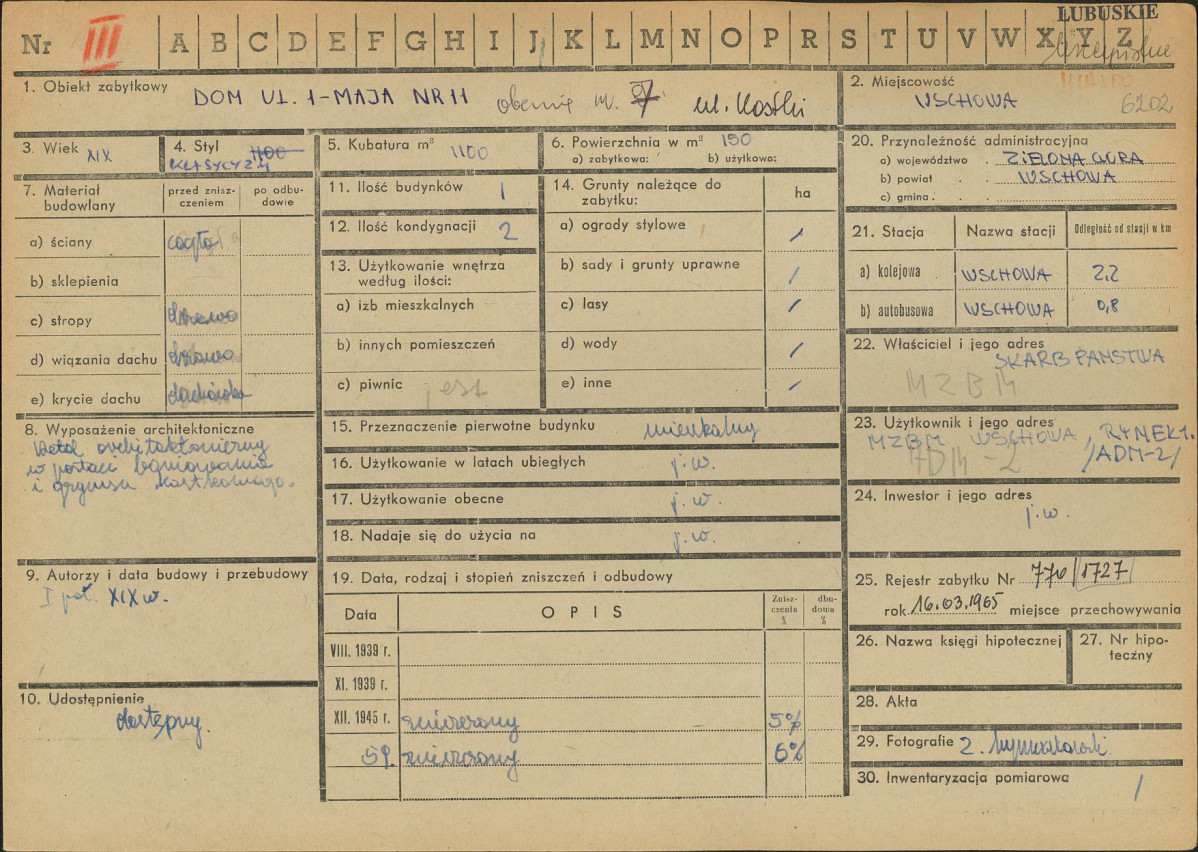 LUBUSKIE
Nr III A B C D E F G H I J K L M N O P R S T U V W X Y Z
1. Obiekt zabytkowy DOM UL. 1-MAJA NR 11 obecnie nr. 7 ul. Kostki
2. Miejscowość
WSCHOWA 6202
3. Wiek XIX
4. Styl 1100
KLASYCYZM
5. Kubatura m³ 1100
6. Powierzchnia w m² 150
a) zabytkowa: b) użytkowa:
7. Materiał budowlany
przed zniszczeniem
po odbudowie
a) ściany cegła
b) sklepienia
c) stropy drewno
d) wiązania dachu drewno
e) krycie dachu dachówka
8. Wyposażenie architektoniczne
Detal architektoniczny
w postaci boniowania
i gzymsu kostkowego.
9. Autorzy i data budowy i przebudowy
I poł. XIX w.
10. Udostępnienie
dostępny.
11. Ilość budynków 1
12. Ilość kondygnacji 2
13. Użytkowanie wnętrza
według ilości:
a) izb mieszkalnych
b) innych pomieszczeń
c) piwnic jest
14. Grunty należące do
zabytku:
ha
a) ogrody stylowe /
b) sady i grunty uprawne /
c) lasy /
d) wody /
e) inne /
15. Przeznaczenie pierwotne budynku mieszkalny
16. Użytkowanie w latach ubiegłych j. w.
17. Użytkowanie obecne j. w.
18. Nadaje się do użycia na j. w.
19. Data, rodzaj i stopień zniszczeń i odbudowy
Data OPIS Zniszczenia % dbudowa %
VIII. 1939 r.
XI. 1939 r.
XII. 1945 r. zniszczony 5%
59. zniszczony 6%
20. Przynależność administracyjna
a) województwo . ZIELONA GÓRA
b) powiat . . WSCHOWA
c) gmina . .
21. Stacja Nazwa stacji Odległość od stacji w km
a) kolejowa WSCHOWA 2,2
b) autobusowa WSCHOWA 0,8
22. Właściciel i jego adres
SKARB PAŃSTWA
MZBM
23. Użytkownik i jego adres
MZBM WSCHOWA, RYNEK 1.
ADM-2 /ADM-2/
24. Inwestor i jego adres
j. w.
25. Rejestr zabytku Nr 770/1727/
rok 16.03.1965 miejsce przechowywania
26. Nazwa księgi hipotecznej
27. Nr hipoteczny
28. Akta
29. Fotografie
30. Inwentaryzacja pomiarowa /